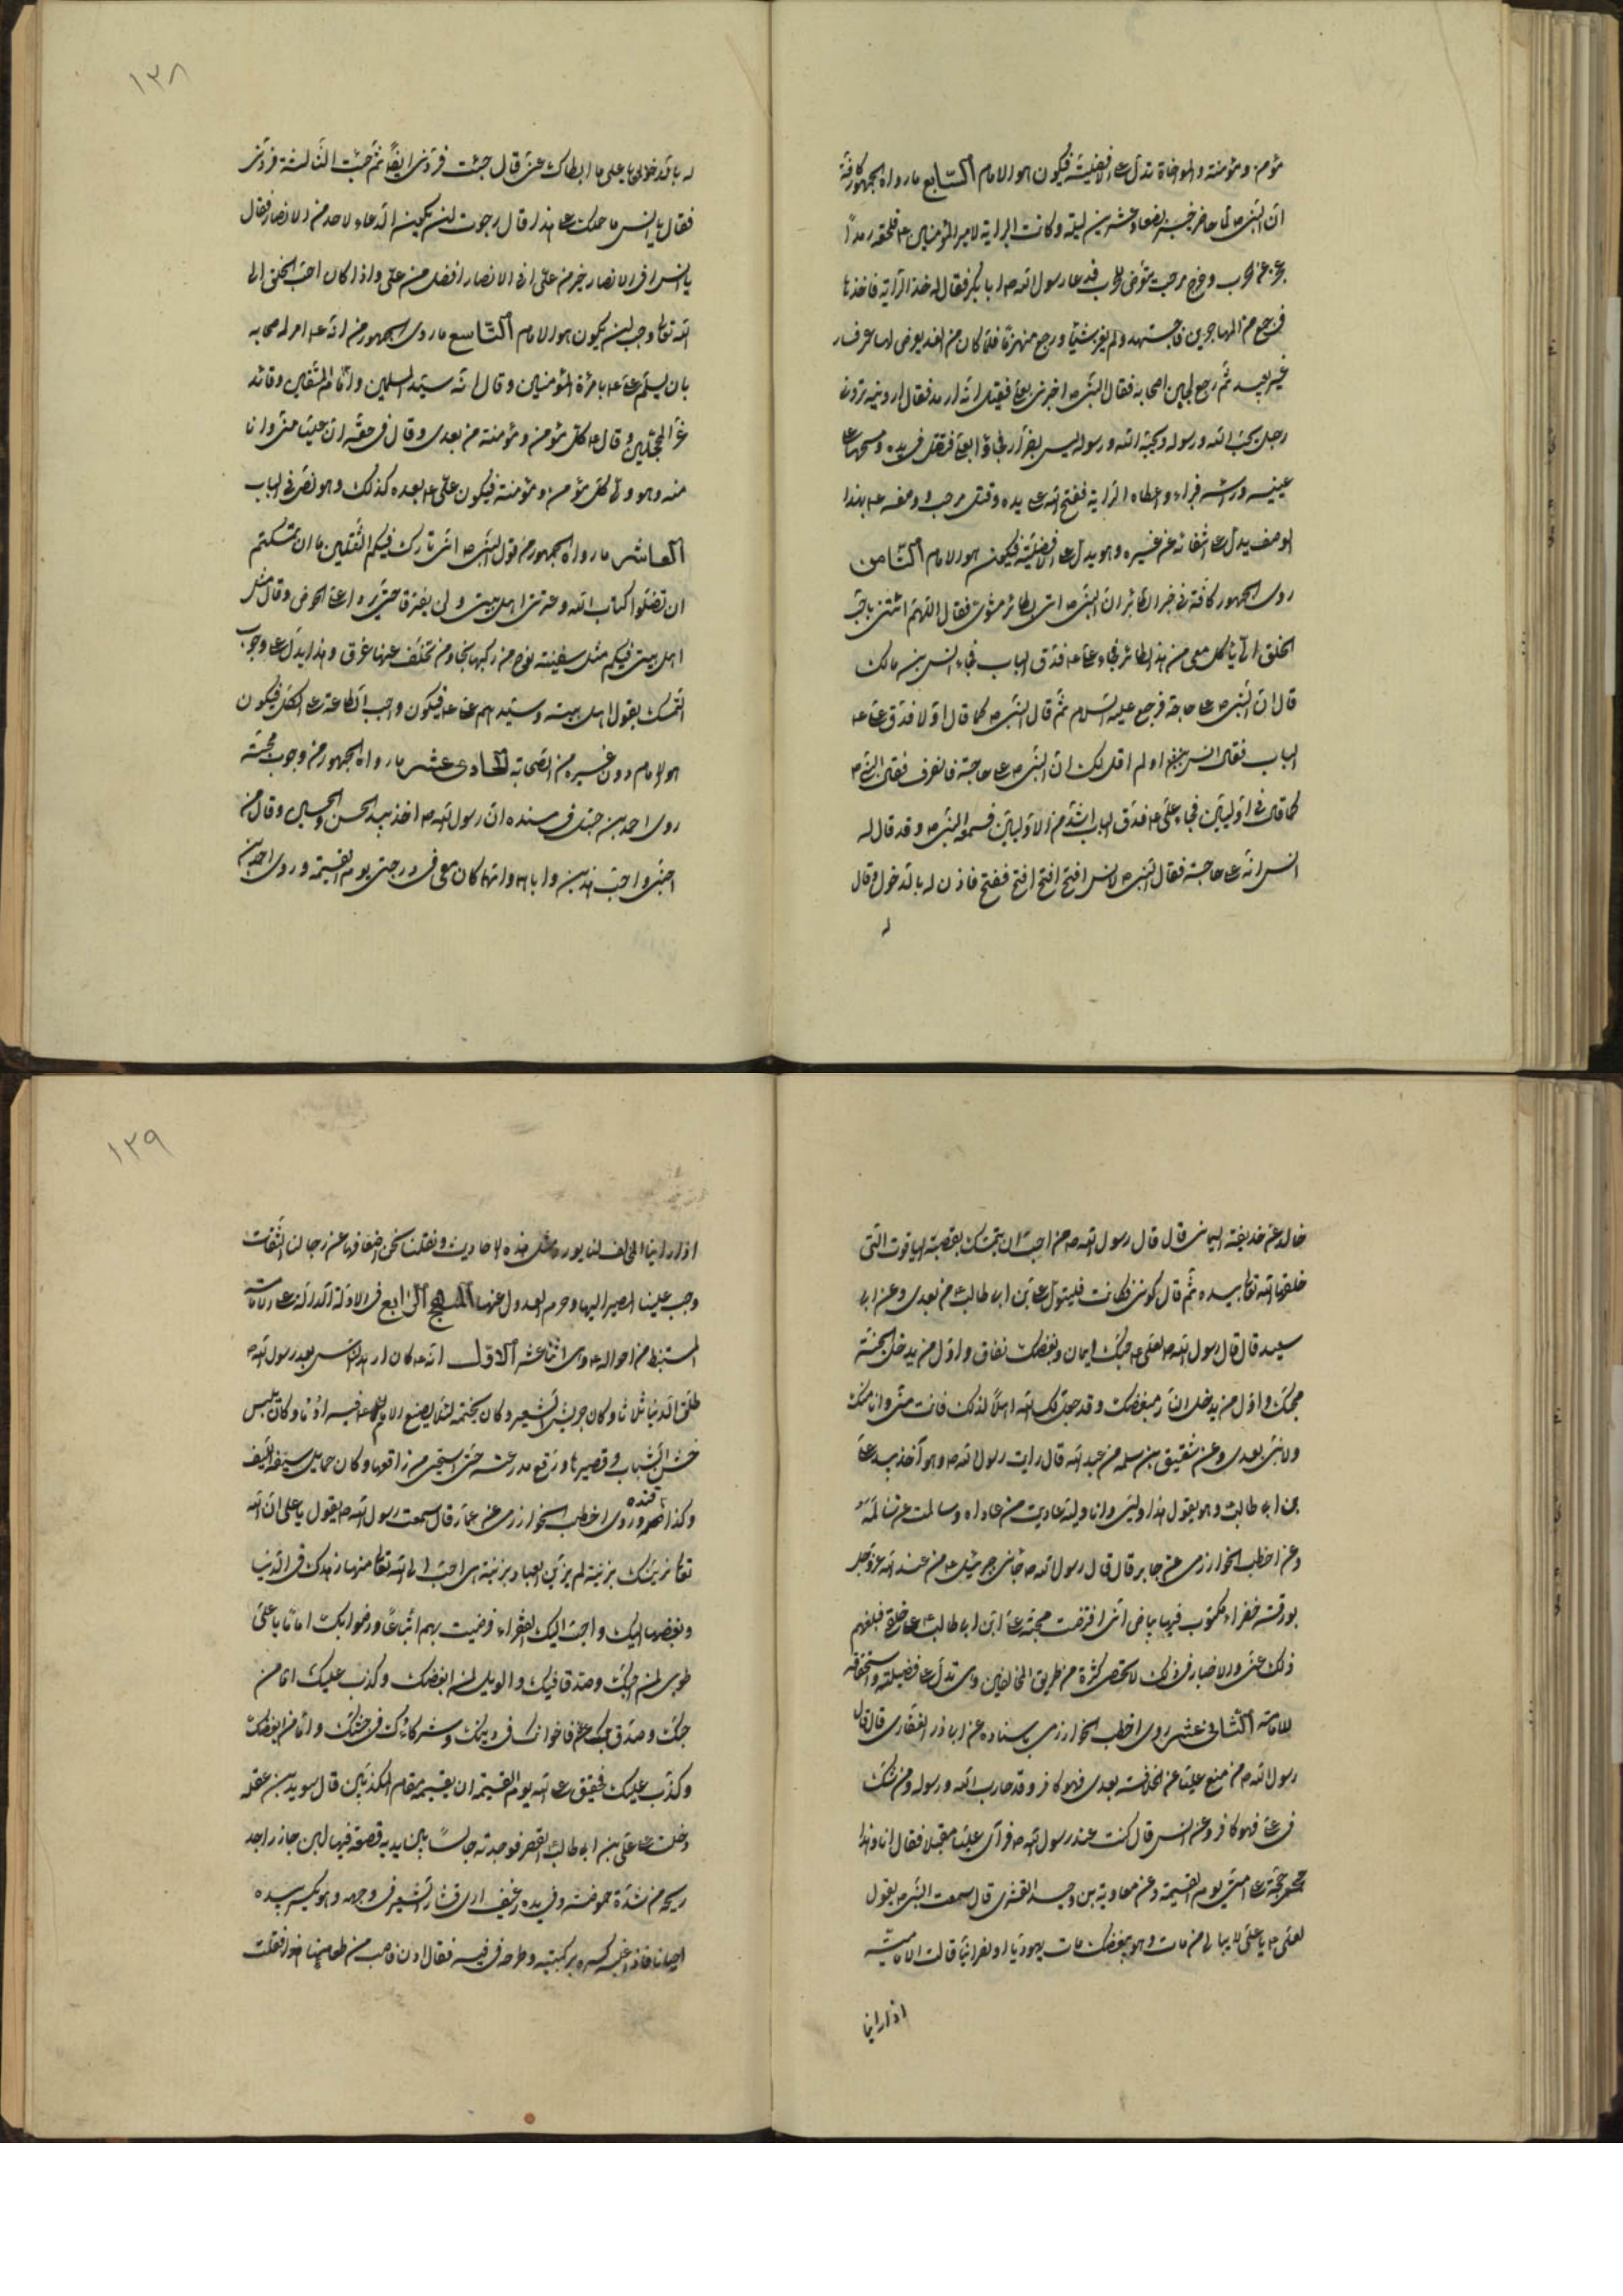 مؤمن ومؤمنة والمواخاة تدل على الافضلية فيكون هو الامام السابع ما رواه الجمهور كافة
ان النبى ص لما حاصر خيبر بضعا وعشرين ليلة وكانت الراية لامير المؤمنين ع فلحقه رمدا
عجز عن الحرب وخرج مرحب يتعرض للحرب فدعا رسول الله ص ابا بكر فقال له خذ الراية فاخذها
فى جمع من المهاجرين فاجتهد ولم يغن شيئا ورجع منهزما فلما كان من الغد تعرض لها عمر فسار
غير بعيد ثم رجع يجبن اصحابه فقال النبى ص اخبرنى بعلى فقيل انه ارمد فقال ارونيه ترونى
رجلا يحب الله ورسوله ويحبه الله ورسوله ليس بفرار فجاؤا بعلى فتفل فى يده ومسحها على
عينيه وراسه فبراء واعطاه الراية ففتح الله على يده وقتل مرحب ووصفه ع بهذا
الوصف يدل على انتفائه عن غيره وهو يدل على الافضلية فيكون هو الامام الثامن
روى الجمهور كافة فى خبر الطائر ان النبى ص اتى بطائر مشوى فقال اللهم ائتنى باحب
الخلق الى ياكل معى من هذا الطائر فجاء على ع فدق الباب فجاء انس بن مالك
قال ان النبى ص على حاجة فرجع عليه السلام ثم قال النبى ص كما قال اولا فدق على ع
الباب فقال انس بن مالك اولم اقل لك ان النبى ص على حاجة فانصرف فقال النبى ص
كما قال فى الاوليين فجاء على ع فدق الباب اشد من الاوليين فسمعه النبى ص وقد قال له
انس انه على حاجة فقال النبى ص لانس افتح افتح افتح ففتح فاذن له بالدخول وقال
له
١٣٨
له بالدخول يا على ما ابطاك عنى قال جئت فردنى ايضا ثم جئت الثالثة فردنى
فقال يا انس ما حملك على هذا قال رجوت ان يكون الدعاء لاحد من الانصار فقال
يا انس افى الانصار خير من على افى الانصار افضل من على واذا كان احب الخلق الى
الله تعالى وجب ان يكون هو الامام التاسع ما روى الجمهور من انه ع امر اصحابه
بان يسلم على ع بامرة المؤمنين وقال انه سيد المسلمين وامام المتقين وقائد
غر المحجلين وقال ع كل مؤمن ومؤمنة من بعدى وقال فى حقه ان عليا منى وانا
منه وهو ولى كل مؤمن ومؤمنة فيكون على ع بعده كذلك وهو نص فى الباب
العاشر ما رواه الجمهور من قول النبى ص انى تارك فيكم الثقلين ما ان تمسكتم
ان تضلوا كتاب الله وعترتى اهل بيتى ولن يفترقا حتى يردا على الحوض وقال مثل
اهل بيتى فيكم مثل سفينة نوح من ركبها نجا ومن تخلف عنها غرق وهذا يدل على وجوب
التمسك بقول اهل بيته وسيدهم على ع فيكون واجب الطاعة على الكل فيكون
هو الامام دون غيره من الصحابة الحادى عشر ما رواه الجمهور من وجوب محبته
روى احمد بن حنبل فى مسنده ان رسول الله ص اخذ بيد الحسن والحسين وقال من
احبنى واحب هذين واباهما وامهما كان معى فى درجتى يوم القيمة وروى احمد بن
خالد عن حذيفة اليمانى قال قال رسول الله ص من احب ان يتمسك بقصبة الياقوت التى
خلقها الله تعالى بيده ثم قال كونى فكانت فليتول على بن ابى طالب من بعدى وعن ابى
سعيد قال قال رسول الله ص لعلى ع حبك ايمان وبغضك نفاق واول من يدخل الجنة
محبك واول من يدخل النار مبغضك وقد جعلك الله اهلا لذلك فانت منى وانا منك
ولا نبى بعدى وعن شقيق بن سلمه عن عبد الله قال رايت رسول الله ص وهو آخذ بيد على
بن ابى طالب وهو يقول هذا وليى وانا وليه عاديت من عاداه وسالمت من سالمه
وعن اخطب الخوارزمى عن جابر قال قال رسول الله ص جائنى جبرئيل ع من عند الله عز وجل
بورقة خضراء مكتوب فيها ببياض انى افترضت محبة على ابن ابى طالب على خلقى فبلغهم
ذلك عنى والاخبار فى ذلك لا تحصى كثرة من طريق المخالفين وهى تدل على فضيلته واستحقاقه
للامامة الثانى عشر روى اخطب الخوارزمى باسناده عن ابى ذر الغفارى قال قال
رسول الله ص من منع عليا عن الخلافة بعدى فهو كافر وقد حارب الله ورسوله ومن شك
فى على فهو كافر وعن انس قال كنت عند رسول الله ص فراى عليا مقبلا فقال انا وهذا
حجة على امتى يوم القيمة وعن معاوية بن وحيد القشيرى قال سمعت النبى ص يقول
لعلى ع يا على لا يبالى من مات وهو يبغضك مات يهوديا او نصرانيا قالت الامامية
اذا راينا
١٣٩
اذا راينا المخالف لنا يورد مثل هذه الاحاديث ونقلنا نحن اضعافها عن رجالنا الثقات
وجب علينا المصير اليها وحرم العدول عنها المنهج الرابع فى الادلة الدالة على امامته
المستنبط من احواله ع وهى اثنا عشر الاول انه ع كان ازهد الناس بعد رسول الله ص
طلق الدنيا ثلاثا وكان جريش الشعير وكان يختمه لئلا يضع الامامان ع فيه اداما وكان يلبس
خشن الثياب وقصيرها ورقع مدرعته حتى استحيى من راقعها وكان حمايل سيفه الليف
وكذا نعله وروى اخطب الخوارزمى عن عمار قال سمعت رسول الله ص يقول يا على ان الله
تعالى زينك بزينة لم يزين العباد بزينة هى احب الى الله تعالى منها زهدك فى الدنيا
وبغضها اليك واحب اليك الفقراء فرضيت بهم اتباعا ورضوا بك اماما يا على
طوبى لمن احبك وصدق فيك والويل لمن ابغضك وكذب عليك اما من
حبك وصدق بك فاخوانك فى دينك وشركائك فى جنتك واما من ابغضك
وكذب عليك فحقيق على الله يوم القيمة ان يقيمه مقام الكذابين قال سويد بن غفله
دخلت على على بن ابى طالب القصر فوجدته جالسا بين يديه قصعة فيها لبن حازر اجد
ريحه من شدة حموضته وفى يده رغيف ارى قشار الشعير فى وجهه وهو يكسر بيده
احيانا فاذا غلبه كسره بركبتيه وطرحه فيه فقال ادن فاصب من طعامنا هذا فقلت